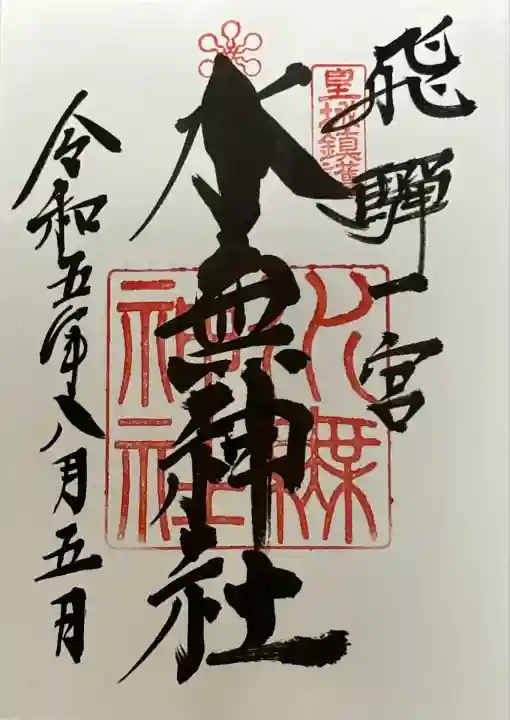 飛驒一宮
皇城鎮護
水無神社
神社
令和五年八月五日